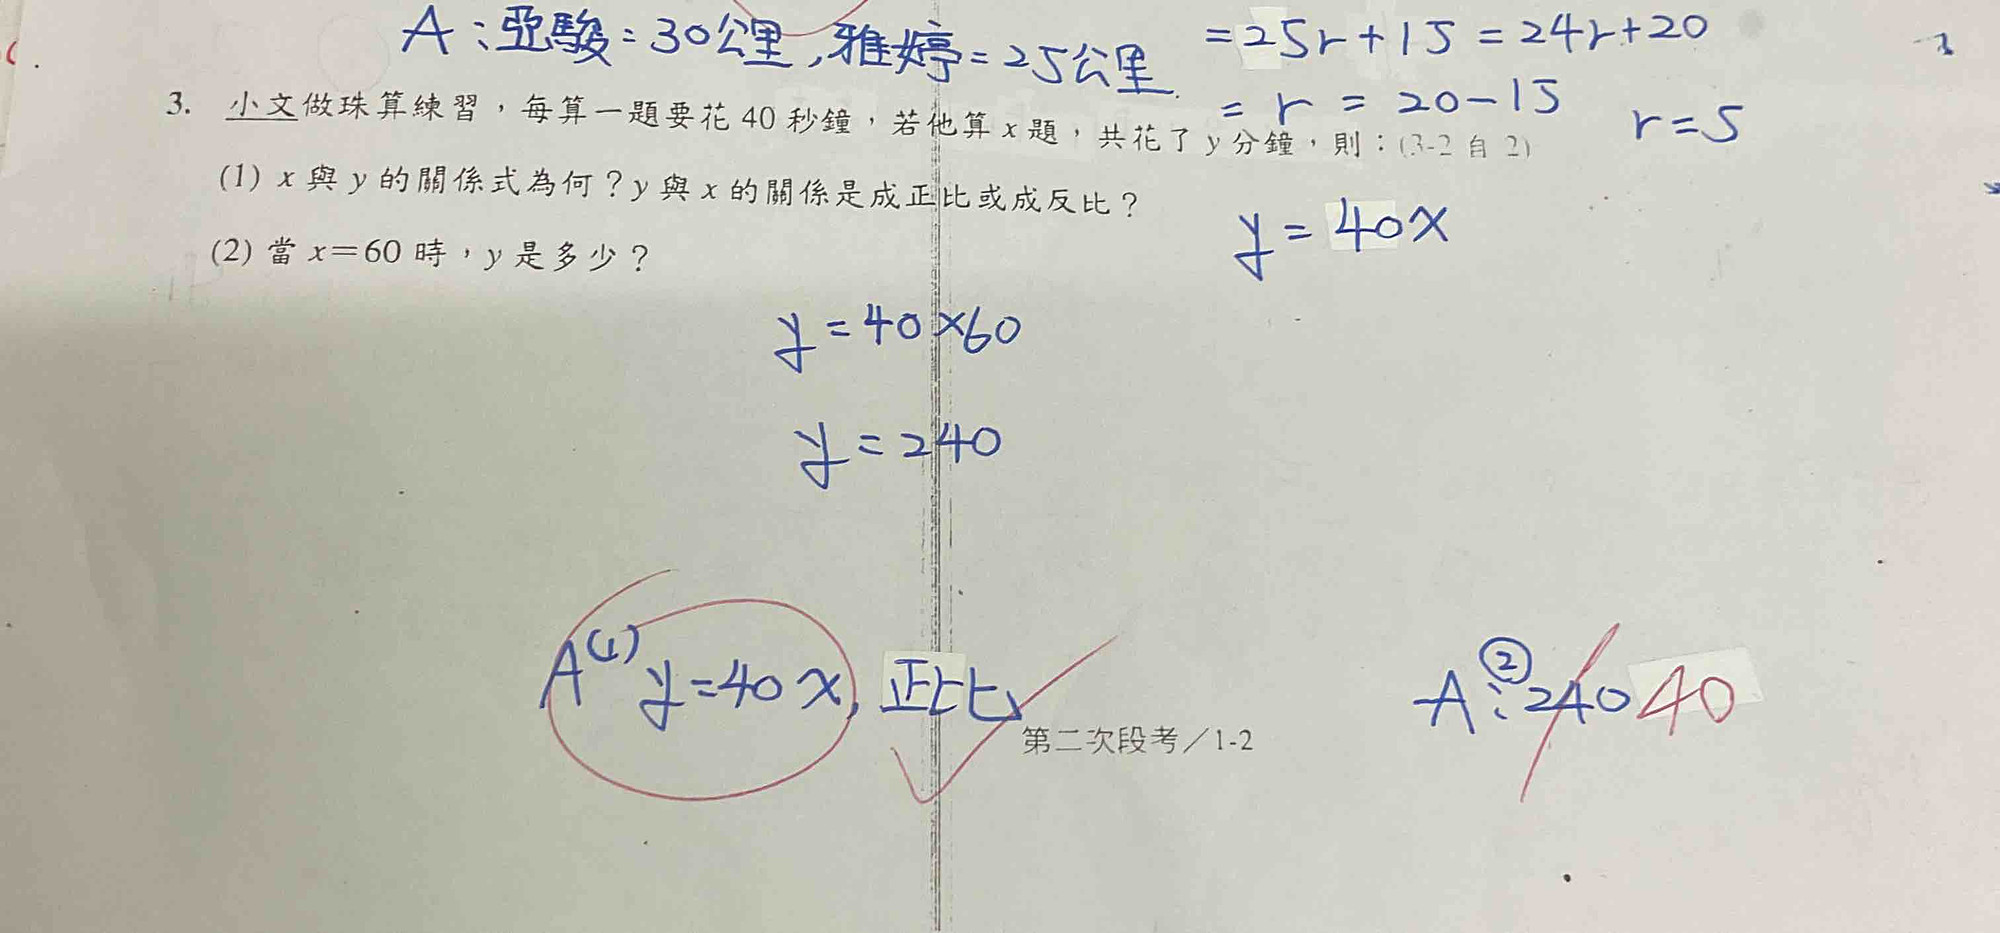 A：亞駿=30公里,雅婷=25公里.
=25r+15=24r+20
=r=20-15
r=5
3. 小文做珠算練習，每算一題要花 40 秒鐘，若他算 x 題，共花了 y 分鐘，則：(3-2 自 2)
(1) x 與 y 的關係式為何？y 與 x 的關係是成正比或成反比？
y=40x
(2) 當 x＝60 時，y 是多少？
y=40×60
y=240
A(1) y=40x, 正比
A：② 240 40
第二次段考／1-2